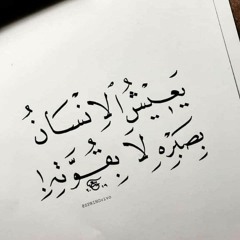 يَعِيْشُ الْإِنْسَانُ
بِصَبْرِهِ لَا بِقُوَّتِهِ!